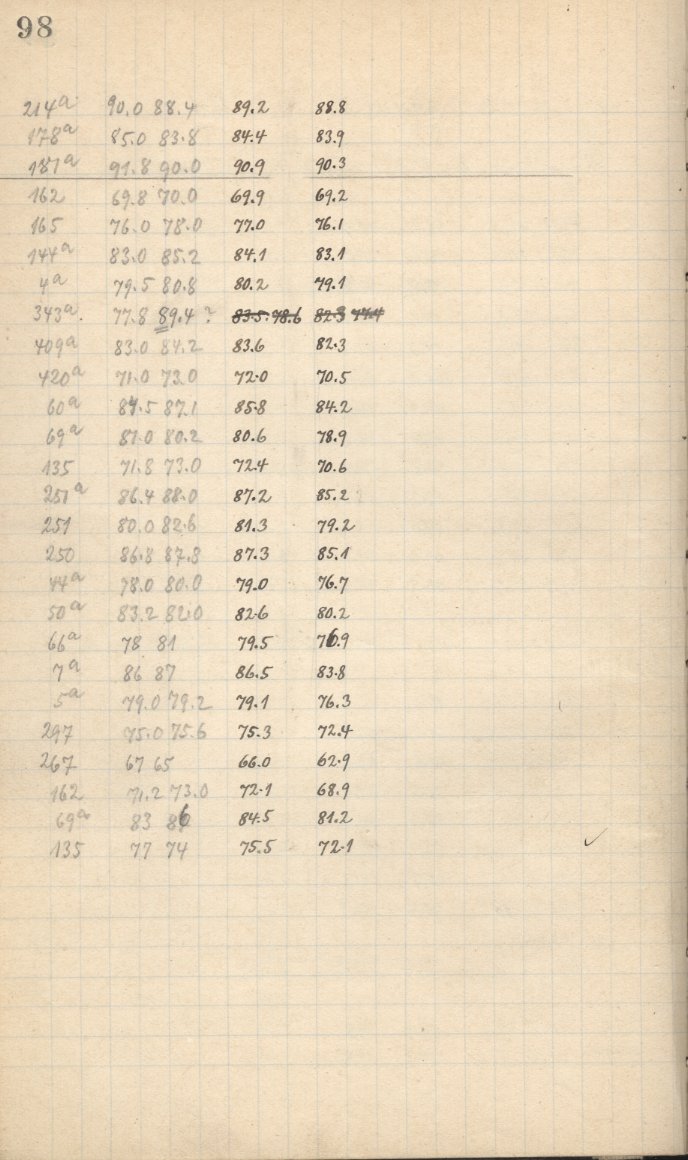 98
214a 90.0 88.4 89.2 88.8
178a 85.0 83.8 84.4 83.9
181a 91.8 90.0 90.9 90.3
162 69.8 70.0 69.9 69.2
165 76.0 78.0 77.0 76.1
144a 83.0 85.2 84.1 83.1
4a 79.5 80.8 80.2 79.1
343a. 77.8 89.4 ? 83.5 78.6 82.3 77.4
409a 83.0 84.2 83.6 82.3
420a 71.0 73.0 72.0 70.5
60a 84.5 87.1 85.8 84.2
69a 81.0 80.2 80.6 78.9
135 71.8 73.0 72.4 70.6
251a 86.4 88.0 87.2 85.2
251 80.0 82.6 81.3 79.2
250 86.8 87.8 87.3 85.1
44a 78.0 80.0 79.0 76.7
50a 83.2 82.0 82.6 80.2
66a 78 81 79.5 76.9
7a 86 87 86.5 83.8
5a 79.0 79.2 79.1 76.3
297 75.0 75.6 75.3 72.4
267 67 65 66.0 62.9
162 71.2 73.0 72.1 68.9
69a 83 86 84.5 81.2
135 77 74 75.5 72.1 ✓